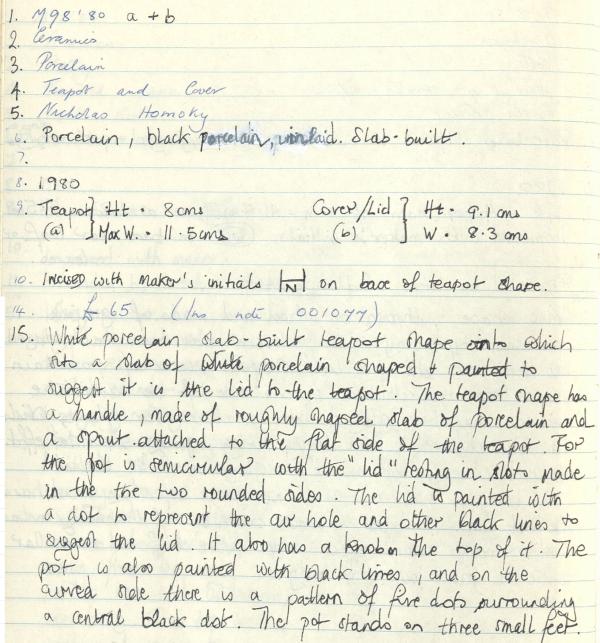 1. M98'80 a + b
2. Ceramics
3. Porcelain
4. Teapot and Cover
5. Nicholas Homoky
6. Porcelain, black porcelain, inlaid. Slab-built.
7.
8. 1980
9. Teapot } Ht. 8 cms Cover/Lid } Ht. 9.1 cms
(a) } Max W. 11.5cms (b) } W. 8.3 cms
10. Incised with maker's initials HN on base of teapot shape.
14. £65 (Ins note 001077)
15. White porcelain slab-built teapot shape into which
sits a slab of white porcelain shaped & painted to
suggest it is the lid to the teapot. The teapot shape has
a handle, made of roughly shaped slab of porcelain and
a spout attached to the flat side of the teapot. For
the pot is semicircular with the "lid" resting in slots made
in the the two rounded sides. The lid is painted with
a dot to represent the air hole and other black lines to
suggest the lid. It also has a knob on the top of it. The
pot is also painted with black lines, and on the
curved side there is a pattern of five dots surrounding
a central black dot. The pot stands on three small feet.